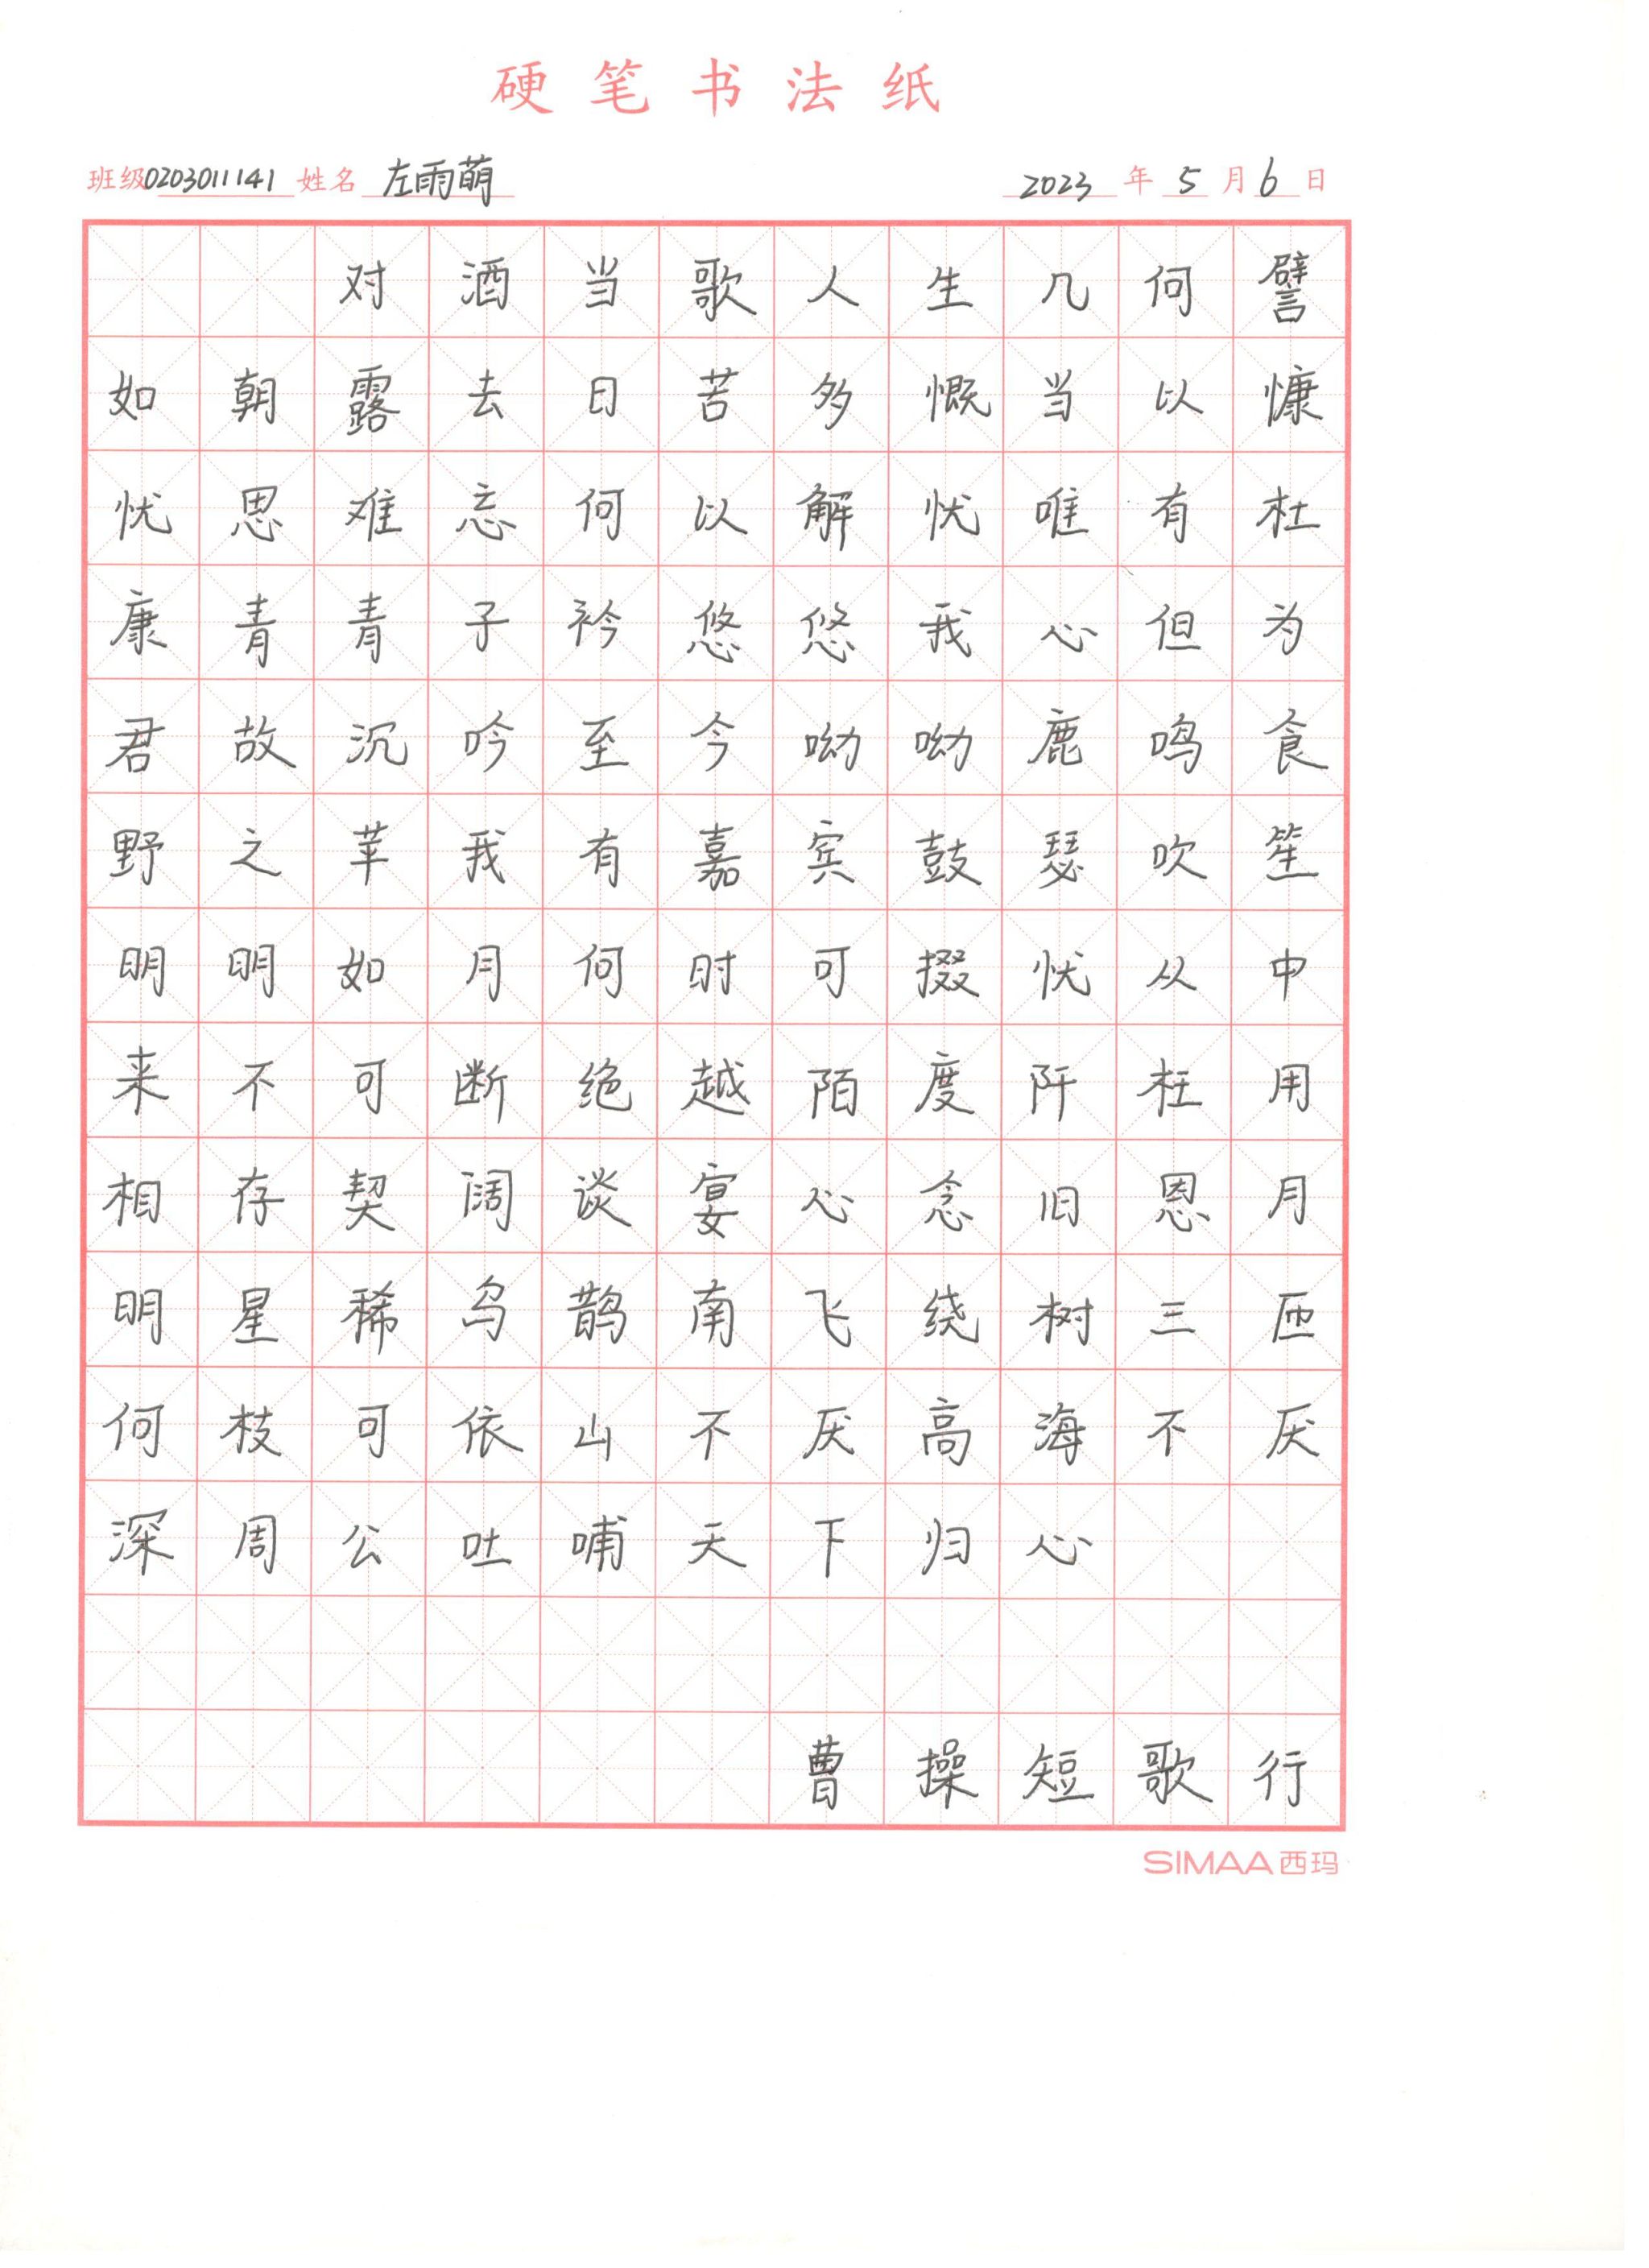 硬笔书法纸
班级0203011141 姓名 左雨萌 2023 年 5 月 6 日
对酒当歌人生几何譬
如朝露去日苦多慨当以慷
忧思难忘何以解忧唯有杜
康青青子衿悠悠我心但为
君故沉吟至今呦呦鹿鸣食
野之苹我有嘉宾鼓瑟吹笙
明明如月何时可掇忧从中
来不可断绝越陌度阡枉用
相存契阔谈宴心念旧恩月
明星稀乌鹊南飞绕树三匝
何枝可依山不厌高海不厌
深周公吐哺天下归心
曹操短歌行
SIMAA西玛